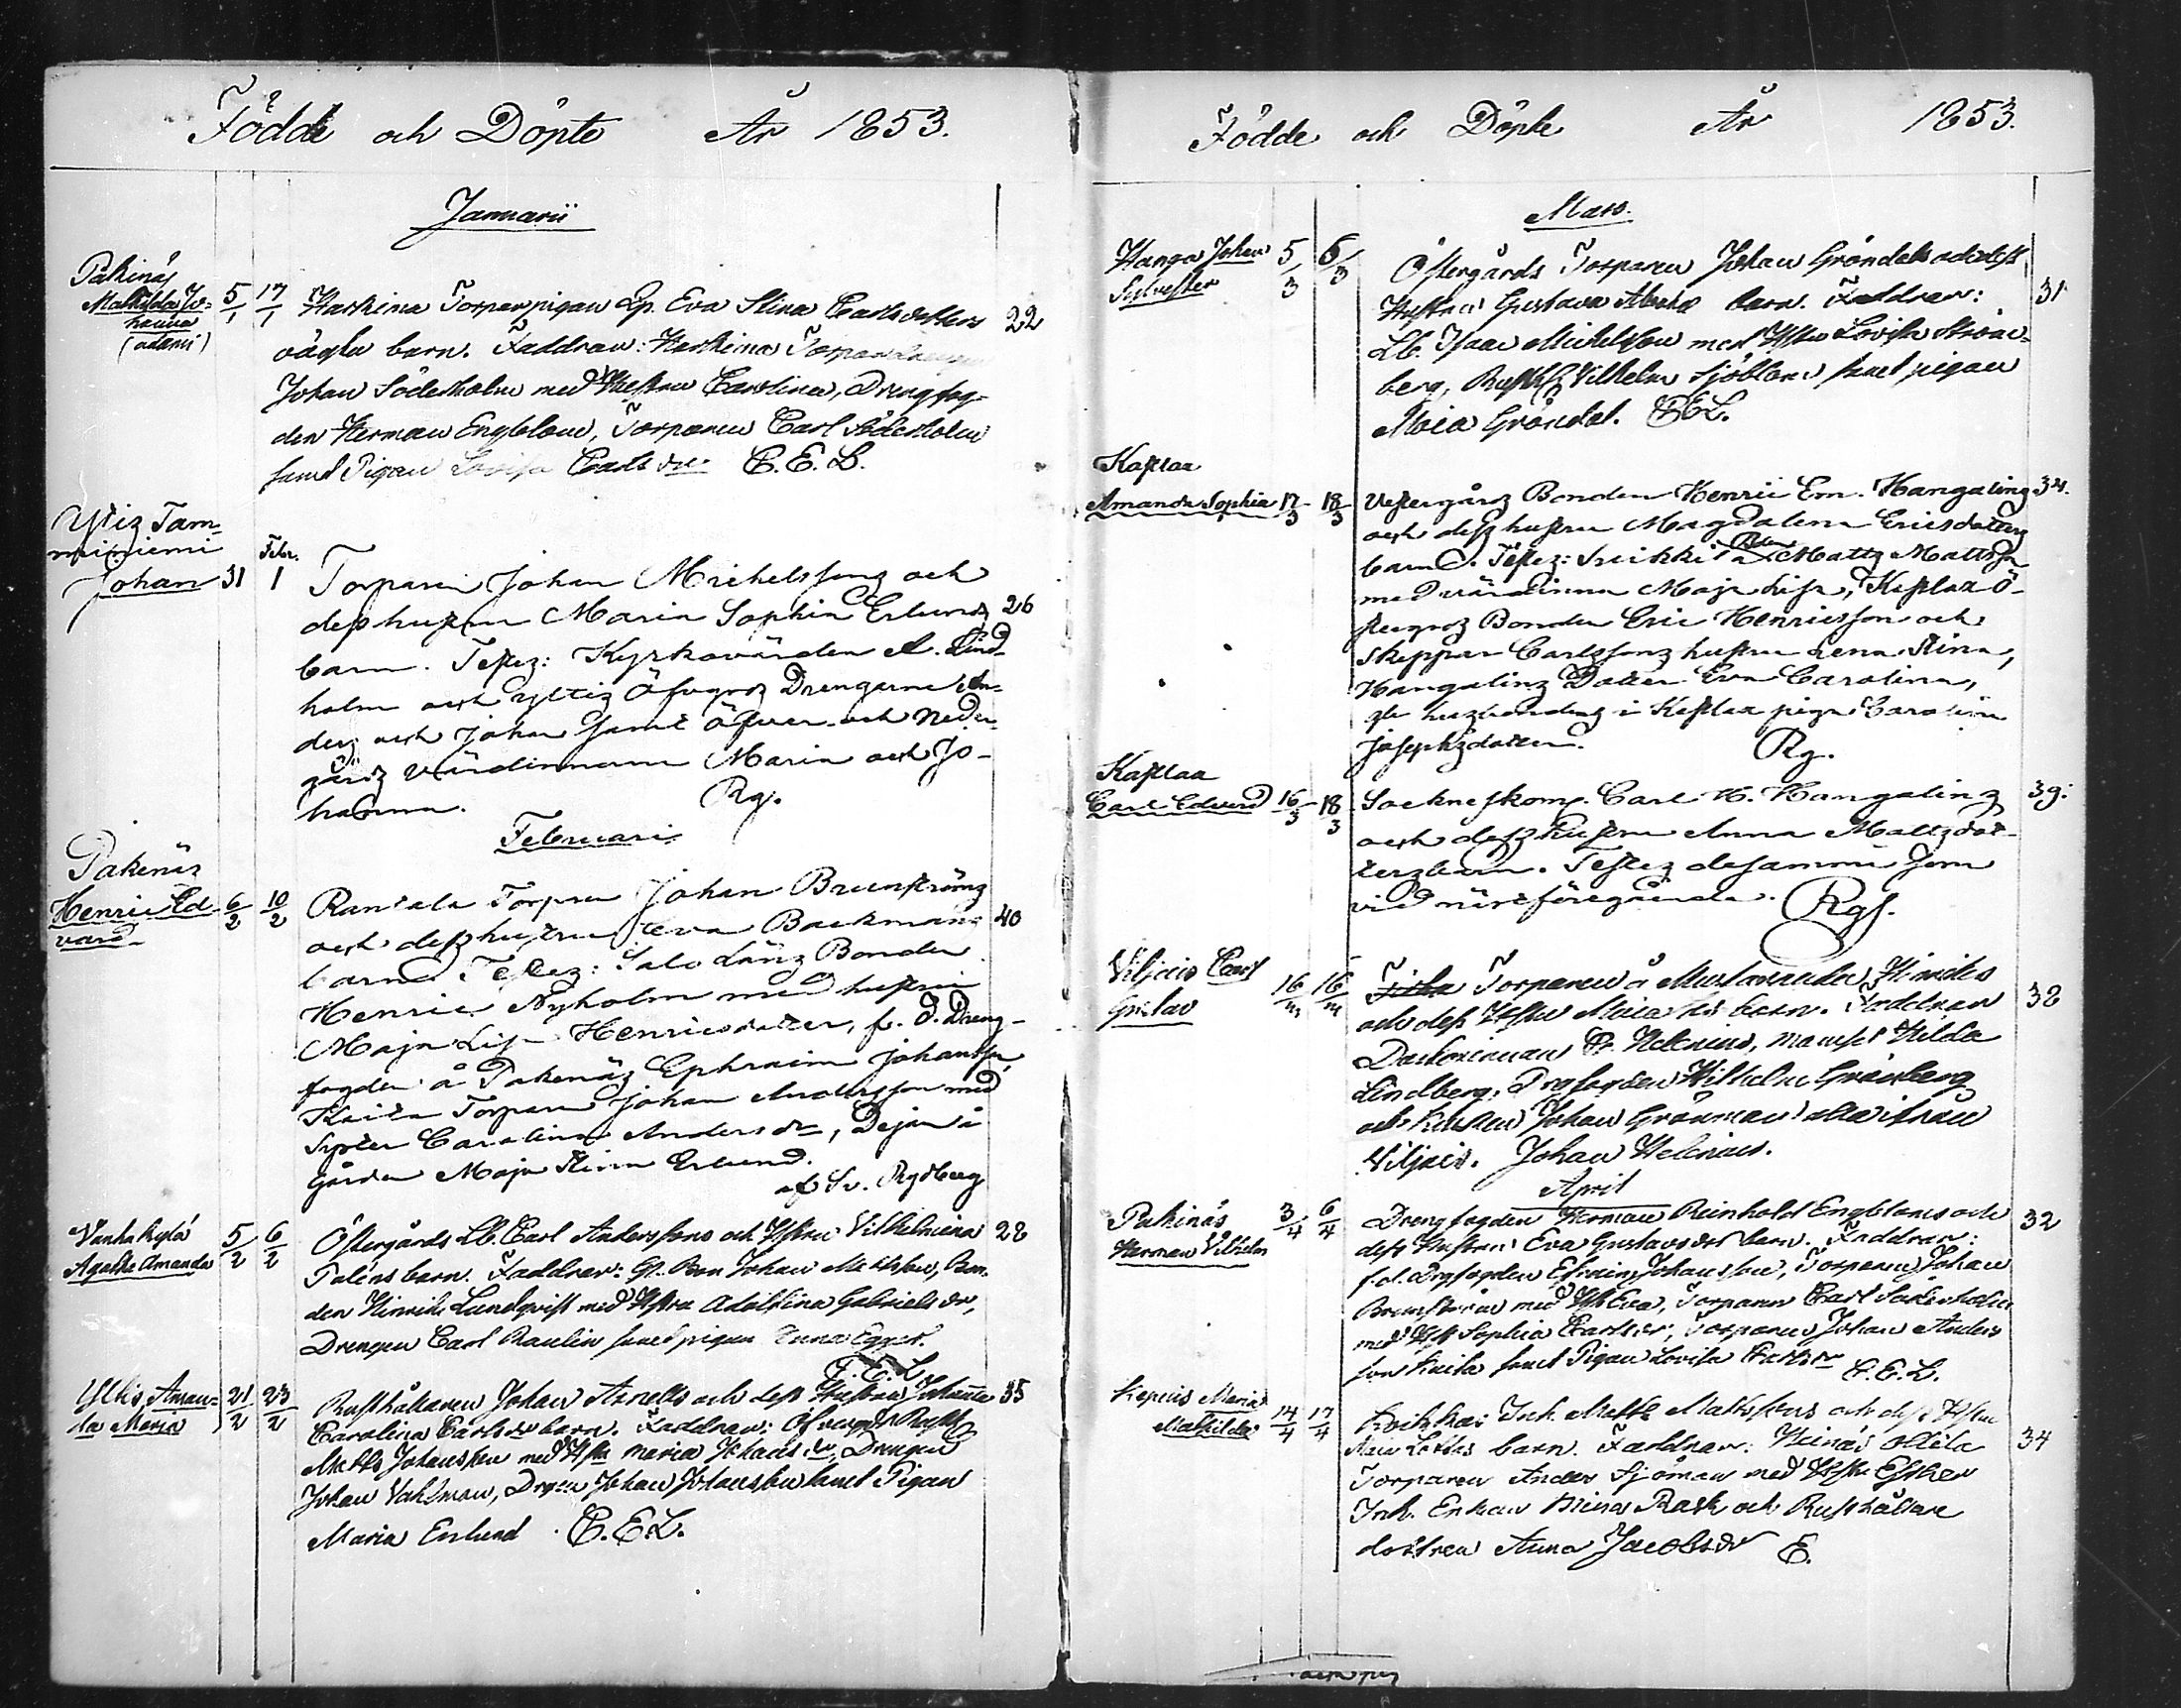 Födde och Döpte År 1853.
Januarii
Pakinäs
Mathilda Jo=
hanna
(odöni)
5/1 17/1 Harkima Torparpigan Lp. Eva Stina Carlsdotters 22
oägta barn. Faddrar: Harkima Torparen
Johan Söderholm med Hustrun Carolina, Drengfog=
den Herman Engblom, Torparen Carl Söderholm
samt Pigan Lovisa Carlsdr C. E. L.
Yltiz Tam=
miniemi
Johan 31 Febr. 1 Torparen Johan Michelssons och
dess hustru Maria Sophia Erlunds 26
barn. Testez: Kyrkovärden A. Lind=
holm och Yltiz Öfvegrds Drengarne An=
ders och Johan samt Öfver- och Neder=
gårds Värdinnorna Maria och Jo-
hanna. Rg.
Februari
Pakenäs
Henric Ed-
vard
6/2 10/2 Rantala Torpren Johan Brunströms
och dess hustru Eva Backmans 40
barn Testez: Salo Länz Bonden
Henric Nyholm med hustru
Maja Lisa Henricsdotter, f. d. Dreng-
fogden å Pakenäs Ephraim Johansson,
Kaita Torparen Johan Andersson med
Syster Carolina Andersdr, Dejan å
Gården Maja Stina Erlund.
af Sv. Rydberg
Vanhakylä
Agatha Amanda
5/2 6/2 Östergårds Lb. Carl Anderssons och Hstru Vilhelmina 28
Palens barn. Faddrar: Gl. Bon Johan Mattsson, Bon
den Hinrik Lundqvist med Hstru Adolfina Gabrielsdr,
Drengen Carl Raulin samt pigan Anna Egger.
C. E. L.
Yltis Aman=
da Maria
21/2 23/2 Rusthållaren Johan Arnells och dess Hustru Johanna 35
Carolina Carlsdr barn. Faddrar: Öfvergds Rusth
Matts Johansson med Hstr Maria Johansdr, Drengen
Johan Vahlman, Drgen Johan Johansson samt Pigan
Maria Enlund. C. E. L.
Födde och Döpte År 1853.
Mars.
Hanga Johan
Sylvester
5/3 6/3 Östergårds Torparen Johan Gröndals och dess
Hustru Gustava barn. Faddrar: 31
Lb. Isaac Michelsson med Hstru Lovisa
berg, Rusth Vilhelm Sjöblom samt pigan
Maia Gröndal. C E L.
Kaplaa
Amanda Sophia 17/3 18/3 Vestergårds Bonden Henric Em. Hangalins 34.
och dess hustru Magdalena Ericsdotters
barn. Testez: Sreikkilä Bon Matts Mattsson
med värdinna Maja Lisa, Kaplax Ö-
stergrds Bonden Eric Henricsson och
Skeppar Carlssons hustru Lena Stina,
Hangalins Dotter Eva Carolina,
i Kaplax pigan Carolina
Josephsdotter. Rg.
Kaplaa
Carl Edvard 16/3 18/3 Sockneskom. Carl H. Hangalins 39.
och dess hustru Anna Mattsdot-
ters barn. Testez desamme som
vid näst föregående. Rgf.
Viljais Carl
Gustav
16/m 16/m Torparen å Mustaranda Hinriks
och dess Hstru Maia barn. Faddrar 32
Daskoninnan Fr. Helenius, Mamsel Hilda
Lindberg, Drgfogden Wilhelm Grönberg
och Kusken Johan Grönman alla ifrån
Viljais. Johan Helenius.
April
Pakinäs
Herman Vilhelm
3/4 6/4 Drengfogden Herman Reinhold Engbloms och 32
dess Hustru Eva Gustavsdr barn. Faddrar:
f.d. Drgfogden Efraim Johansson, Torparen Johan
Brunström med Hst Eva, Torparen Carl Söderholm
med Hst Sophia Carlsdr, Torparen Johan Anders
son Kaita samt Pigan Lovisa Carlsdr C. E. L.
Kepius Maria
Mathilda
14/4 17/4 Inh. Matts Mattssons och dess Hstru
Maia Lottas barn. Faddrar: Heinäs Ollila 34
Torparen Anders Sjöman med Hstru Esther
Inh. Enkan Stina Rask och Rusthållare
dottren Anna Jacobsdr E.